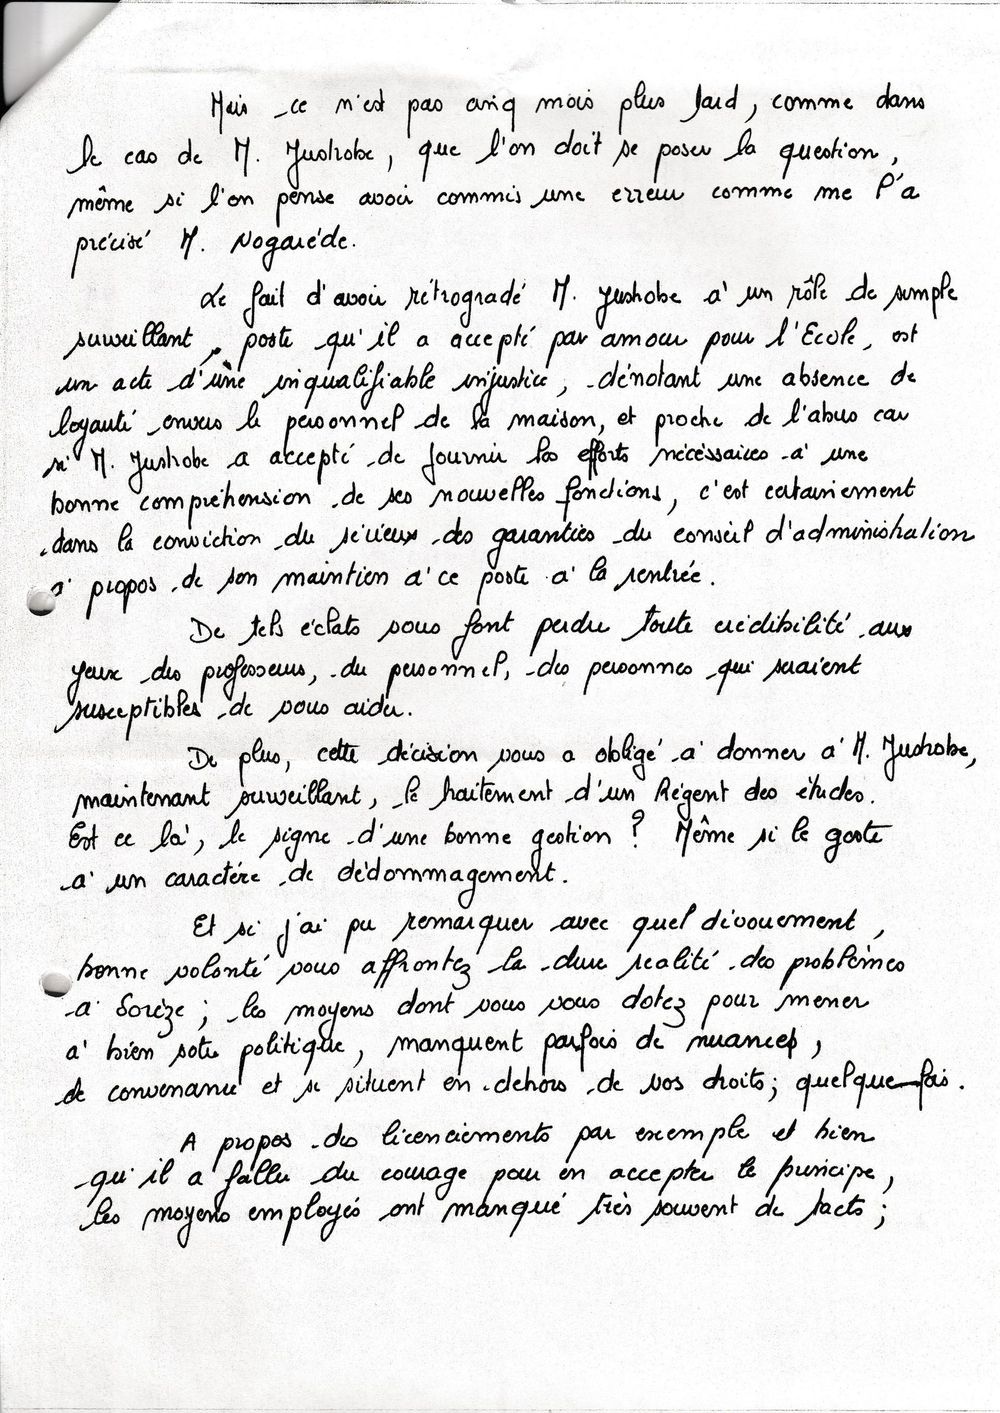 Mais ce n'est pas cinq mois plus tard, comme dans
le cas de M. Juskobe, que l'on doit se poser la question,
même si l'on pense avoir commis une erreur comme me l'a
précisé M. Nogarède.
Le fait d'avoir rétrogradé M. Juskobe à un rôle de simple
surveillant, poste qu'il a accepté par amour pour l'Ecole, est
un acte d'une inqualifiable injustice, dénotant une absence de
loyauté envers le personnel de la maison, et proche de l'abus car
si M. Juskobe a accepté de fournir les efforts nécéssaires à une
bonne compréhension de ses nouvelles fonctions, c'est certainement
dans la conviction du sérieux des garanties du conseil d'administration
à propos de son maintien à ce poste à la rentrée.
De tels éclats vous font perdre toute crédibilité aux
yeux des professeurs, du personnel, des personnes qui seraient
susceptibles de vous aider.
De plus, cette décision vous a obligé à donner à M. Juskobe,
maintenant surveillant, le traitement d'un Régent des études.
Est ce là, le signe d'une bonne gestion ? Même si le geste
a un caractère de dédommagement.
Et si j'ai pu remarquer avec quel dévouement,
bonne volonté vous affrontez la dure réalité des problèmes
à Sorèze ; les moyens dont vous vous dotez pour mener
à bien votre politique, manquent parfois de nuances,
de convenance et se situent en dehors de vos droits ; quelque fois.
A propos des licenciements par exemple et bien
qu'il a fallu du courage pour en accepter le principe,
les moyens employés ont manqué très souvent de tacts ;